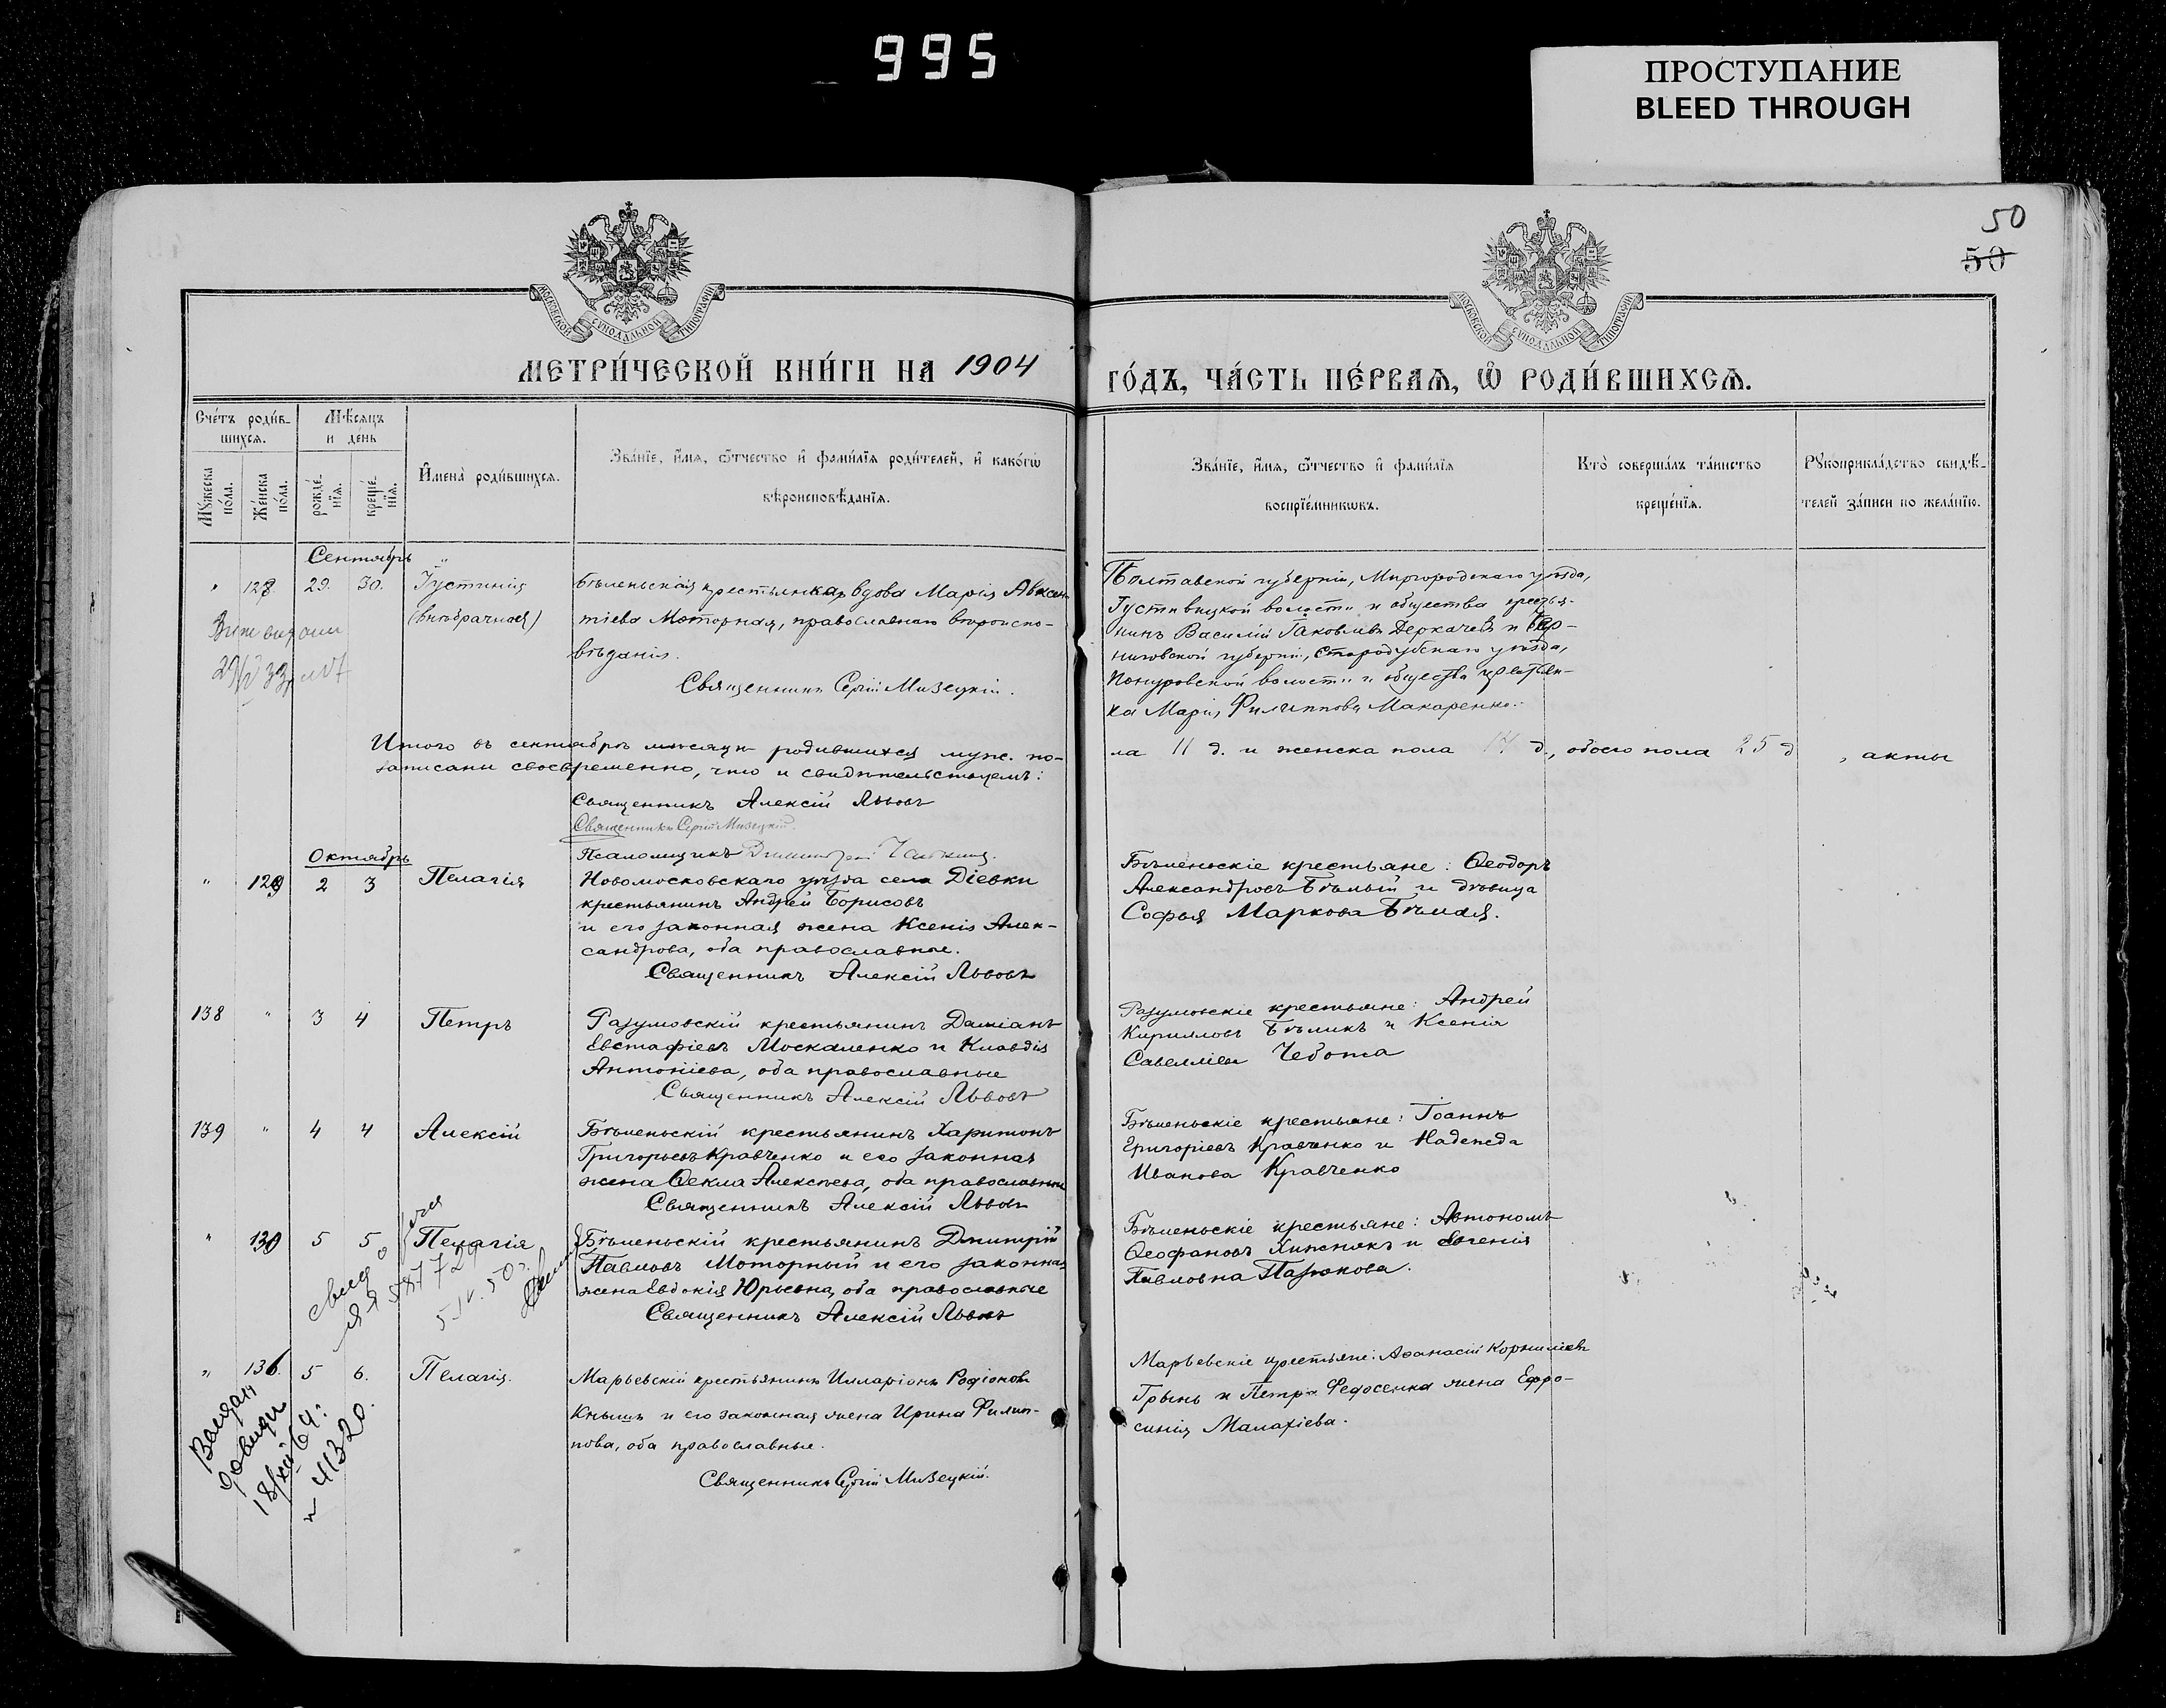 995
ПРОСТУПАНИЕ
BLEED THROUGH
50
50
МОСКОВСКОЙ СУНОДАЛЬНОЙ ТИПОГРАФІИ
МОСКОВСКОЙ СУНОДАЛЬНОЙ ТИПОГРАФІИ
МЕТРИ́ЧЕСКОЙ КНИ́ГИ НА 1904
ГО́ДЪ, ЧА́СТЬ ПЕ́РВАѦ, Ѿ РОДИ́ВШИХСѦ.
Сче́тъ роди́в-
шихсѧ.
Мѣсѧцъ
и де́нь
Мꙋжеска
по́ла.
Же́нска
по́ла.
рожде́-
нїѧ.
креще́-
нїѧ.
И҆мена̀ роди́вшихсѧ.
Зва́нїе, и҆́мѧ, ѻ҆́тчество и҆ фами́лїѧ роди́телей, и҆ како́гѡ
вѣроисповѣ́данїѧ.
Зва́нїе, и҆́мѧ, ѻ҆́тчество и҆ фами́лїѧ
воспрїе́мникѡвъ.
Кто̀ соверша́лъ та́инство
креще́нїѧ.
Рꙋкоприкла́дство свидѣ́-
телей за́писи по жела́нїю.
Сентябрь
" 128. 29. 30. Іустинія
(внѣбрачная)
Бѣленьская крестьянка, вдова Марія Авксен-
тіева Моторная, православнаго вѣроиспо-
вѣданія.
Священникъ Сергій Мизецкій.
Полтавской губерніи, Миргородскаго уѣзда,
волости и общества крестья-
нинъ Василій Іаковлевъ Деркачевъ и Чер-
ниговской губерніи, Стародубскаго уѣзда,
Понуровской волости и общества крестьян-
ка Марія Филиппова Макаренко.
Итого въ сентябрѣ мѣсяцѣ родившихся муж. по-
ла 11 д. и женска пола 14 д., обоего пола 25 д., акты
записаны своевременно, что и свидѣтельствуемъ:
Священникъ Алексій Львовъ
Священникъ Сергій Мизецкій.
Псаломщикъ Димитрій
Октябрь
" 129 2 3 Пелагія
Новомосковскаго уѣзда села Діевки
крестьянинъ Андрей Борисовъ
и его законная жена Ксенія Алек-
сандрова, оба православные.
Священникъ Алексій Львовъ
Бѣленьскіе крестьяне: Ѳеодоръ
Александровъ Бѣлый и дѣвица
Софья Маркова Бѣлая.
138 " 3 4 Петръ
Разумовскій крестьянинъ Даміанъ
Евстафіевъ Москаленко и Клавдія
Антоніева, оба православные
Священникъ Алексій Львовъ
Разумовскіе крестьяне: Андрей
Кирилловъ Бѣликъ и Ксенія
Савелліева Чебота
139 " 4 4 Алексій
Бѣленьскій крестьянинъ Харитонъ
Григорьевъ Кравченко и его законная
жена Ѳекла Алексѣева, оба православные
Священникъ Алексій Львовъ
Бѣленьскіе крестьяне: Іоаннъ
Григоріевъ Кравченко и Надежда
Иванова Кравченко
" 130 5 5 Пелагія
Бѣленьскій крестьянинъ Димитрій
Павловъ Моторный и его законная
жена Евдокія Юрьевна, оба православные
Священникъ Алексій Львовъ
Бѣленьскіе крестьяне: Автономъ
Ѳеофановъ Хижнякъ и Евгенія
Павловна Пазюкова.
" 131. 5 6. Пелагія.
Марьевскій крестьянинъ Илларіонъ Родіоновъ
Кнышъ и его законная жена Ирина Филип-
пова, оба православные.
Священникъ Сергій Мизецкій.
Марьевскіе крестьяне: Аѳанасій Корниліевъ
Грынь и Петра Федосенка жена Ефро-
синія Малахіева.
18/XII 64.
N 41320.